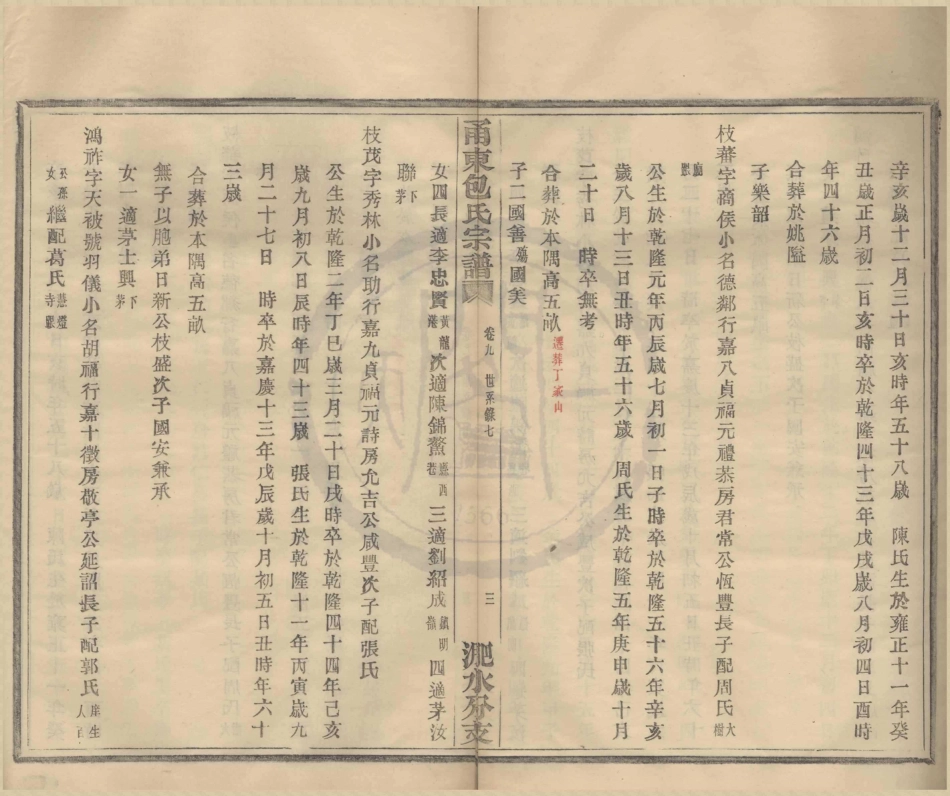 辛亥歲十二月三十日亥時年五十八歲　陳氏生於雍正十一年癸
丑歲正月初二日亥時卒於乾隆四十三年戊戌歲八月初四日酉時
年四十六歲
合葬於姚隘
子樂韶
枝蕃字商侯小名德鄰行嘉八貞福元禮恭房君常公恆豐長子配周氏大樹
公生於乾隆元年丙辰歲七月初一日子時卒於乾隆五十六年辛亥
歲八月十三日丑時年五十六歲　周氏生於乾隆五年庚申歲十月
二十日　時卒無考
合葬於本隅高五畝遷葬丁家山
子二國善殤國美
甬東包氏宗譜
卷九　世系條七
三
淝水分支
女四長適李忠賢黃龍港次適陳錦鰲三適劉紹成四適茅汝
聯下茅
枝茂字秀林小名助行嘉九貞福元詩房允吉公咸豐次子配張氏
公生於乾隆二年丁巳歲三月二十日戌時卒於乾隆四十四年己亥
歲九月初八日辰時年四十三歲　張氏生於乾隆十一年丙寅歲九
月二十七日　時卒於嘉慶十三年戊辰歲十月初五日丑時年六十
三歲
合葬於本隅高五畝
無子以胞弟日新公枝盛次子國安兼承
女一適茅士興下茅
鴻祚字天被號羽儀小名胡福行嘉十徵房敬亭公延詔長子配郭氏庠生
女繼配葛氏